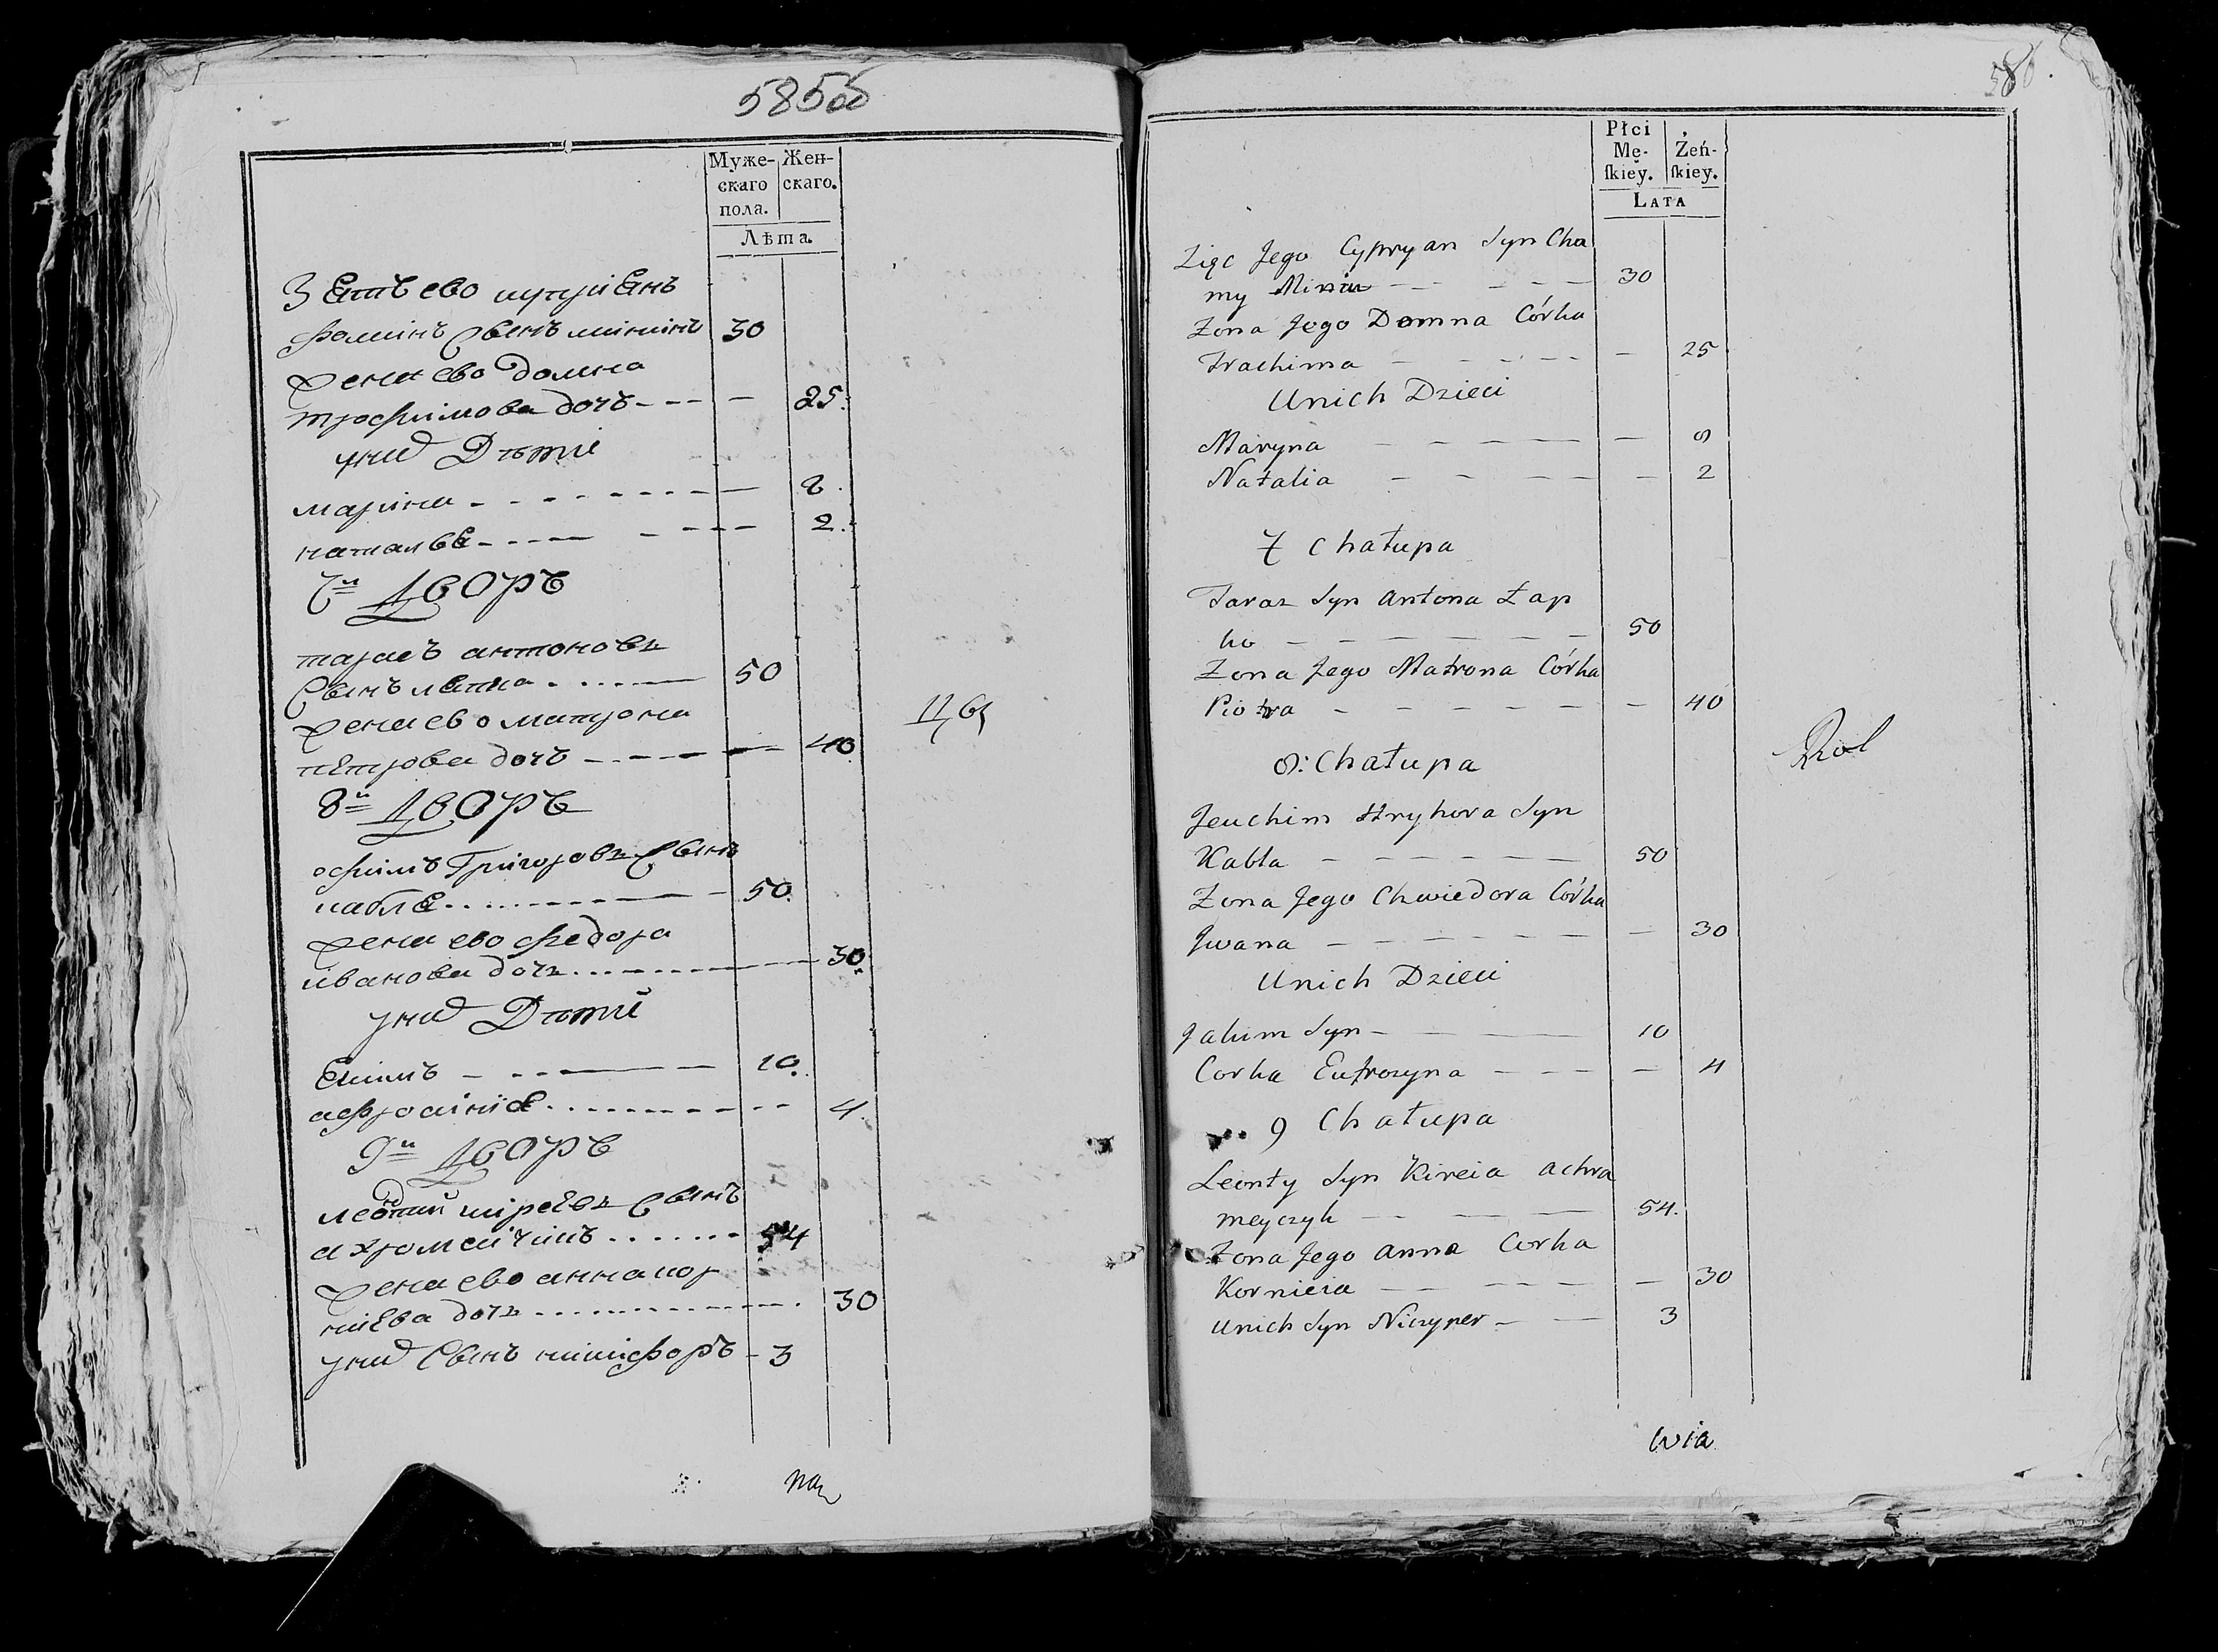 585об
Муже- Жен-
скаго скаго.
пола.
Лѣта.
Зять ево куприянъ
фоминъ сынъ мининъ 30
жена ево домна
трофимова дочь - - - — 25.
у них Дѣти
марина - - - - - - - — 8.
наталья - - - - — - - - — 2.
7й Дворъ
тарасъ антоновъ
сынъ лапка - - - - - — 50
жена ево матрона
петрова дочь - - - - — 40
8й Дворъ
ефимъ Григоровъ сынъ
кабля - - - - - - — 50.
жена ево федора
иванова дочь - - - - - — 30.
у них Дѣти
Якимъ - - - — 10.
афросиния - - - - - - - - - 4.
9й Дворъ
леонтий киреевъ сынъ
ахромейчикъ - - - - - - 54
жена ево анна кор
нѣева дочь - - - - - - - - 30
у них сынъ никифоръ - 3
580.
Płci
Mę- Żeń-
skiey. skiey.
LATA
Zięc Jego Cypryan Syn Cho
my Minin — - — - — 30
Zona Jego Domna Córka
Trachima — - - - - — — 25
Unich Dzieci
Maryna — — — — — 8
Natalia — — — — — 2
7 Chałupa
Taraz Syn Antona Łap
ko — — — — — — 50
Zona Jego Matrona Córka
Piotra — — — — — — 40
8: Chałupa
Jeuchim Hryhora Syn
Kabla — — — — — — 50
Zona Jego Chwiedora Córka
Jwana — — — — — — 30
Unich Dzieci
Jakim Syn — — 10
Corka Eufrozyna — — — — 4
9 Chałupa
Leonty Syn Kireia Achra
meyczyk — — — 54.
Zona Jego Anna Corka
Kornieia — — — — — 30
Unich Syn Niczyper — — 3
wia